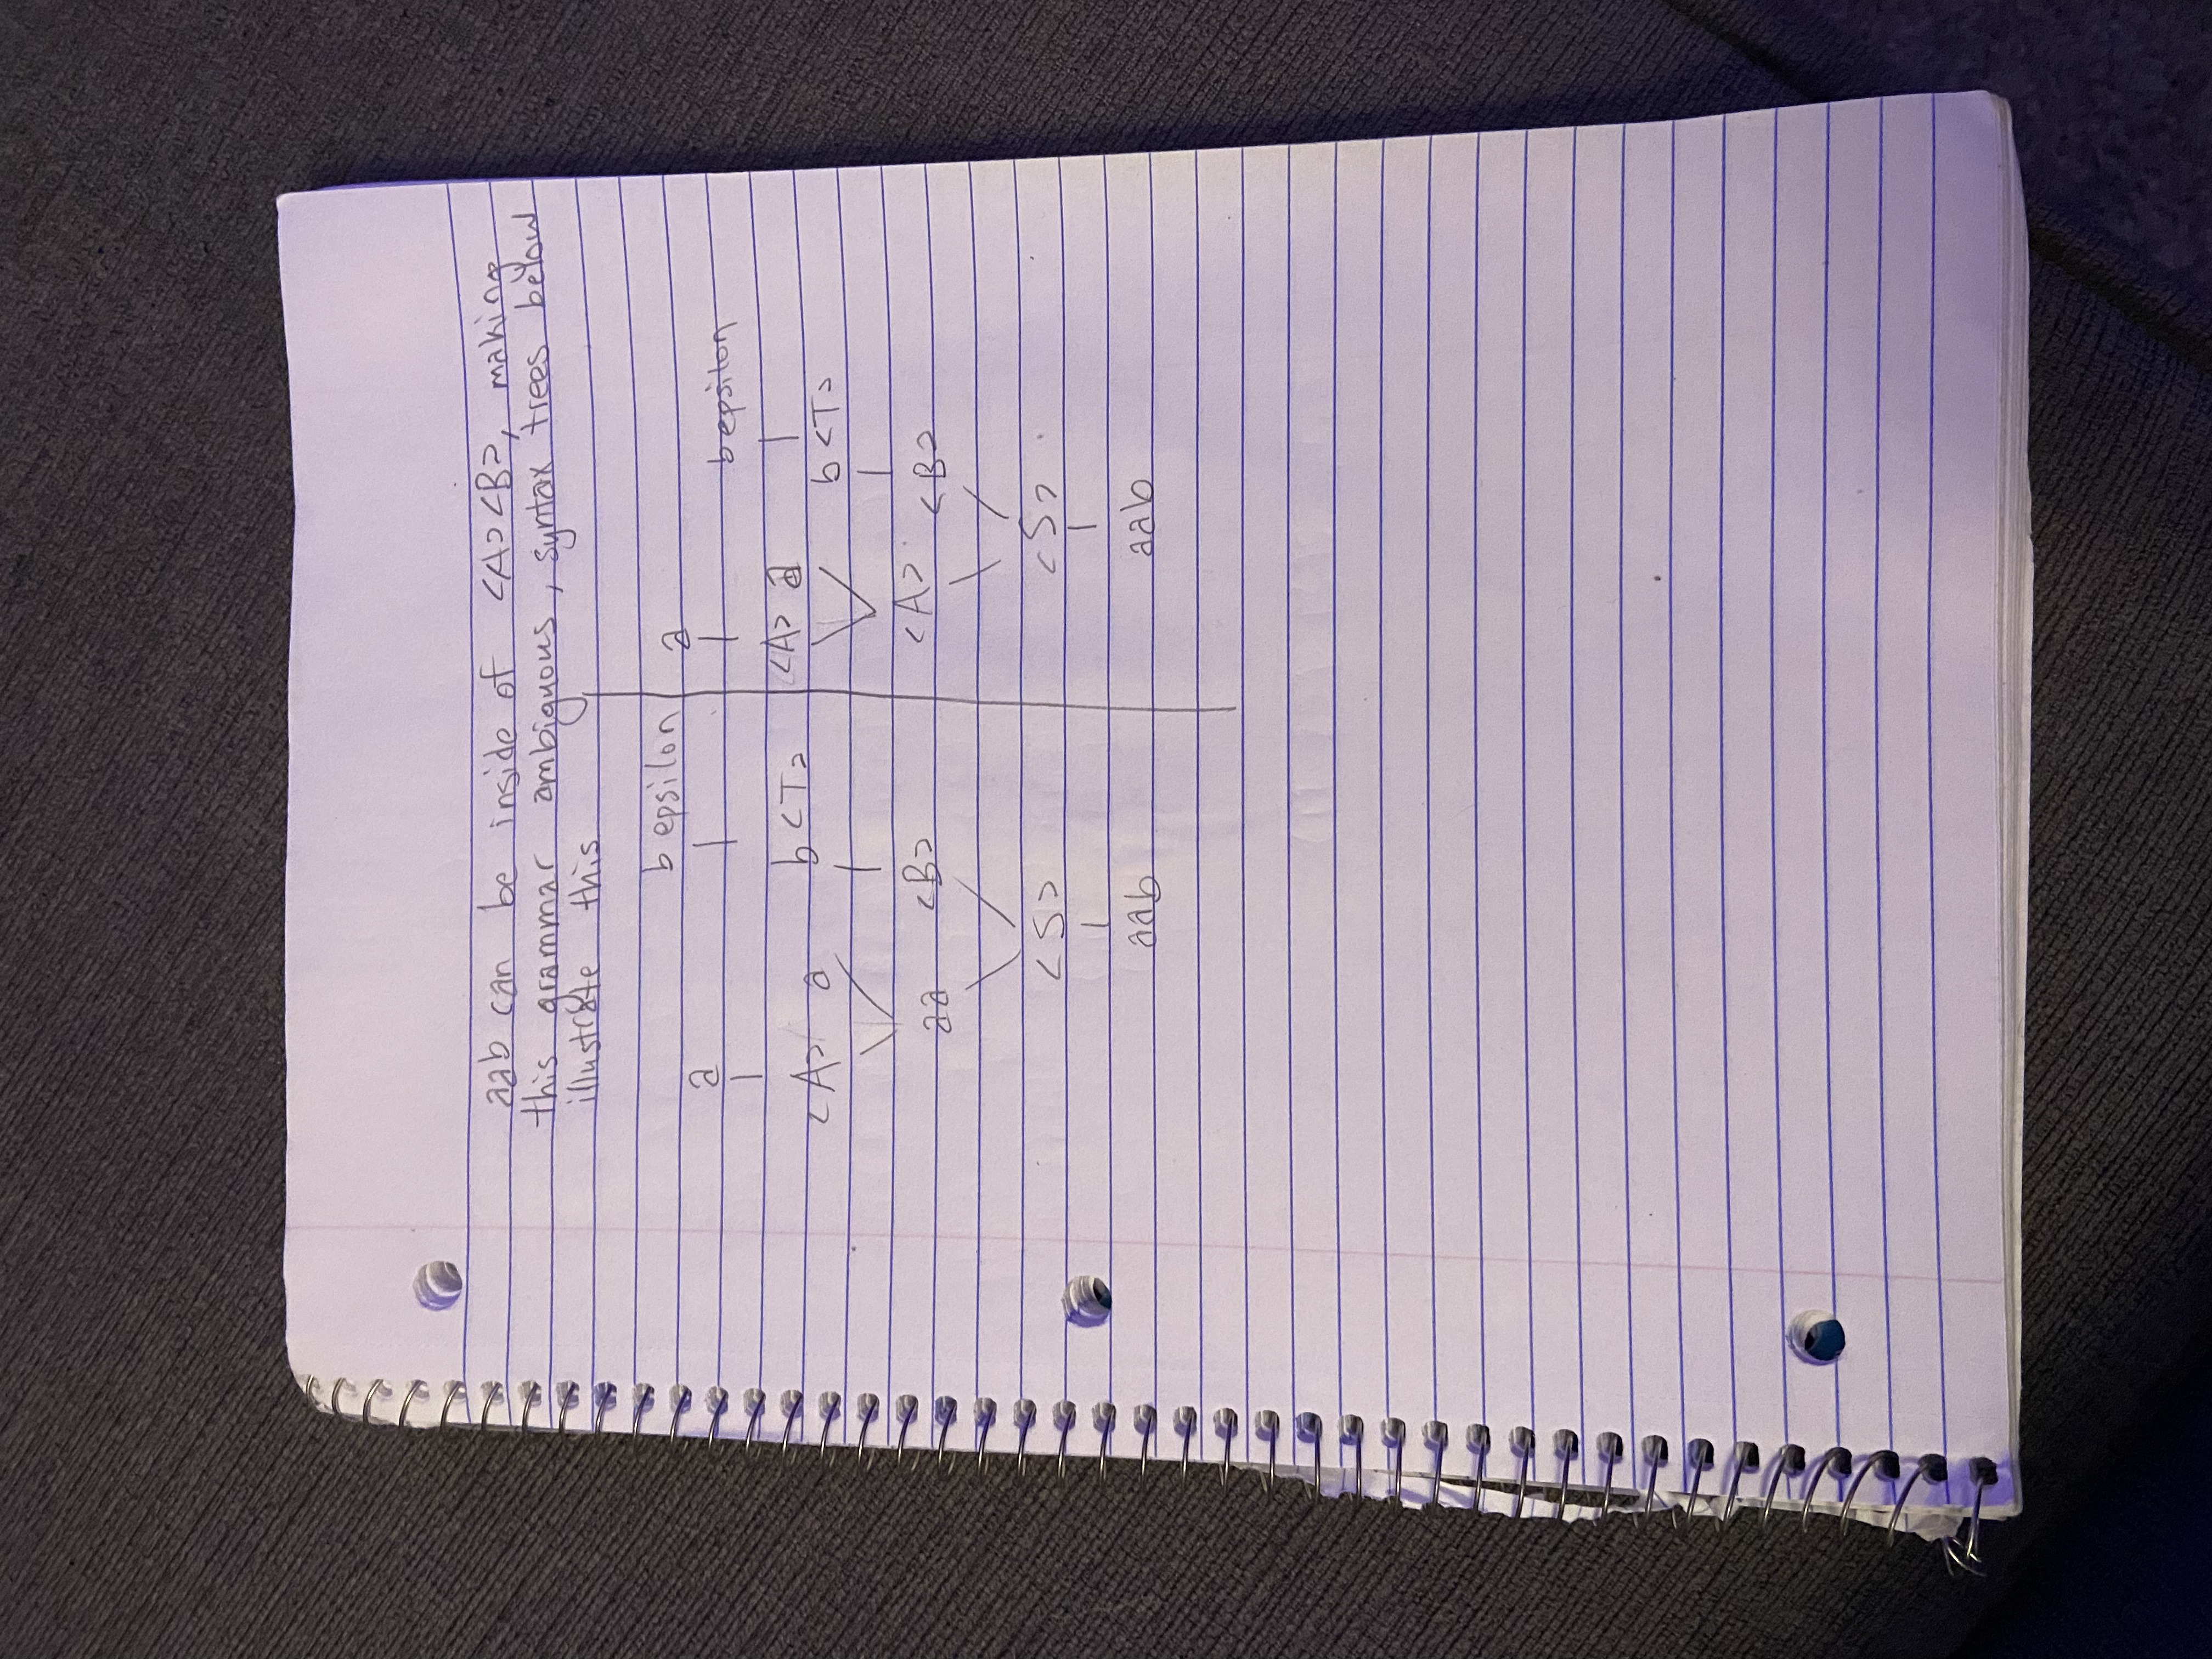 aab can be inside of <A><B>, making
this grammar ambiguous, syntax trees below
illustrate this
b epsilon
a
b <T>
<A> a
aa <B>
<S>
aab
a
b epsilon
<A> a
b <T>
<A> <B>
<S>
aab